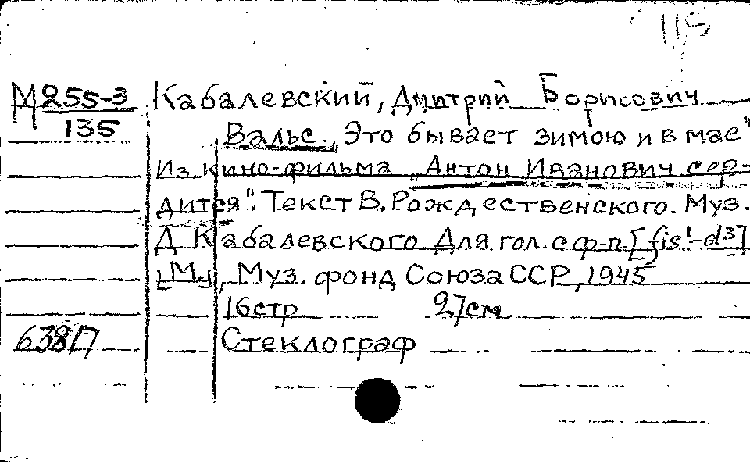 115
М 255-3 Кабалевский, Дмитрий Борисович
135 Вальс „Это бывает зимою и в мае"
Из кино-фильма „Антон Иванович сер-
дится". Текст В. Рождественского. Муз.
Д Кабалевского Для гол. с ф-п. [fis¹-d³]
[М], Муз. фонд Союза ССР, 1945
16стр 27см
638П Стеклограф